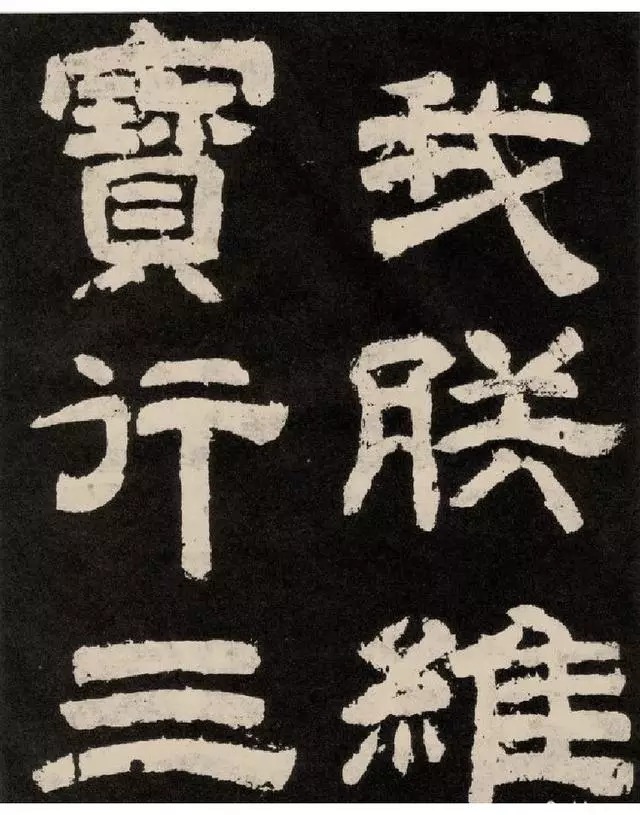 我朕維
寶行三